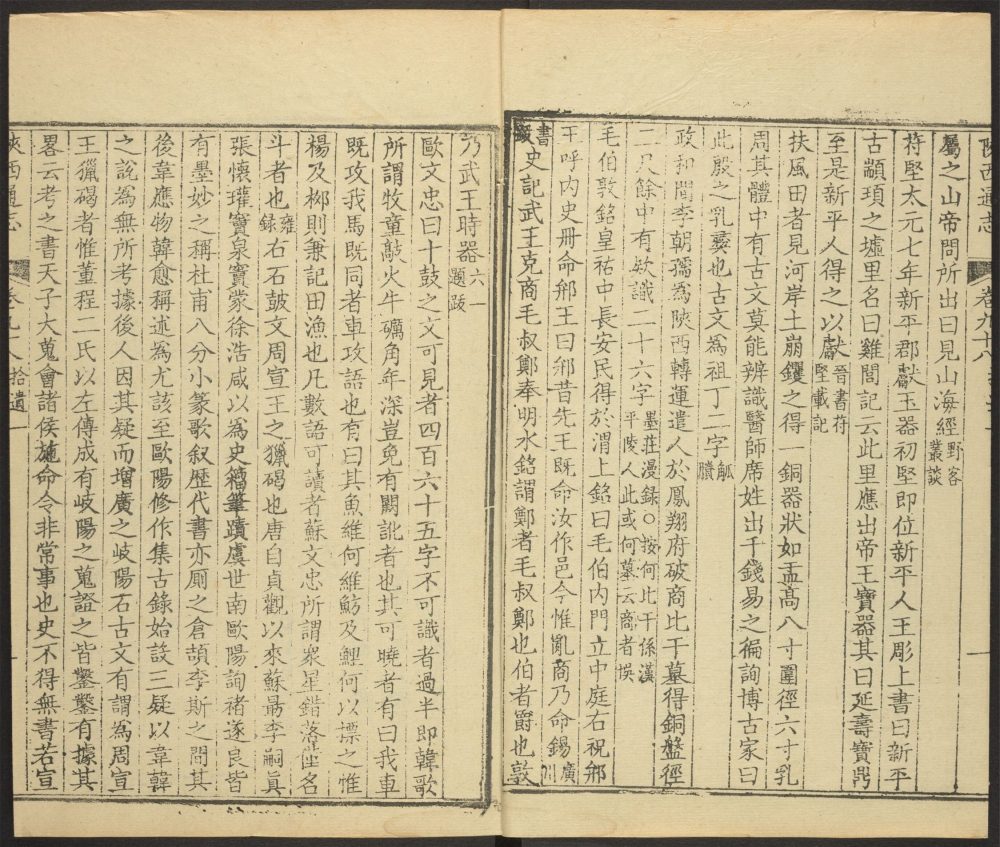 陝西通志 卷九十八 拾遺一
屬之山帝問所出曰見山海經野客叢談
苻堅太元七年新平郡獻玉器初堅即位新平人王彫上書曰新平
古顓頊之墟里名曰雞閭記云此里應出帝王寶器其曰延壽寶鼎
至是新平人得之以獻晉書苻堅載記
扶風田者見河岸土崩钁之得一銅器狀如盂髙八寸圍徑六寸乳
周其體中有古文莫能辨識醫師席姓出千錢易之徧詢博古家曰
此殷之乳彞也古文為祖丁二字觚賸
政和間李朝孺為陝西轉運遣人於鳳翔府破商比干墓得銅盤徑
二尺餘中有欵識二十六字墨莊漫錄○按何比干係漢平陵人此或何墓云商者悞
毛伯敦銘皇祐中長安民得於渭上銘曰毛伯內門立中庭右祝鄉
王呼內史冊命鄉王曰鄉昔先王既命汝作邑今惟亂商乃命錫廣川
書跋史記武王克商毛叔鄭奉明水銘謂鄭者毛叔鄭也伯者爵也敦
乃武王時器六一題跋
歐文忠曰十鼓之文可見者四百六十五字不可識者過半即韓歌
所謂牧童敲火牛礪角年深豈免有闕訛者也其可曉者有曰我車
既攻我馬既同者車攻語也有曰其魚維何維魴及鯉何以摽之惟
楊及栁則兼記田漁也凡數語可讀者蘇文忠所謂衆星錯落僅名
斗者也雍錄右石鼓文周宣王之獵碣也唐自貞觀以來蘇勗李嗣真
張懷瓘竇泉竇蒙徐浩咸以為史籀筆蹟虞世南歐陽詢褚遂良皆
有墨妙之稱杜甫八分小篆歌叙歴代書亦厠之倉頡李斯之間其
後韋應物韓愈稱述為尤該至歐陽修作集古錄始設三疑以韋韓
之說為無所考據後人因其疑而增廣之岐陽石古文有謂為周宣
王獵碣者惟董程二氏以左傳成有岐陽之蒐證之皆鑿鑿有據其
畧云考之書天子大蒐會諸侯施命令非常事也史不得無書若宣
陝西通志 卷九十八 拾遺一